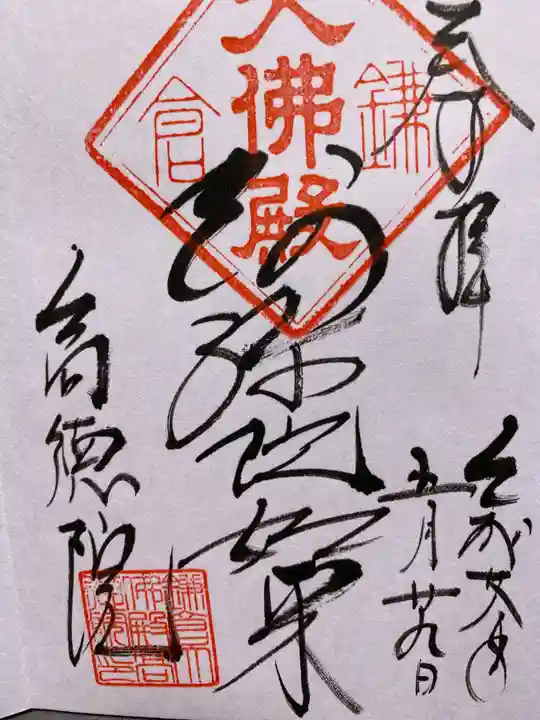 奉拝
五月廿九日
鎌倉
大佛殿
阿弥陀如来
高德院